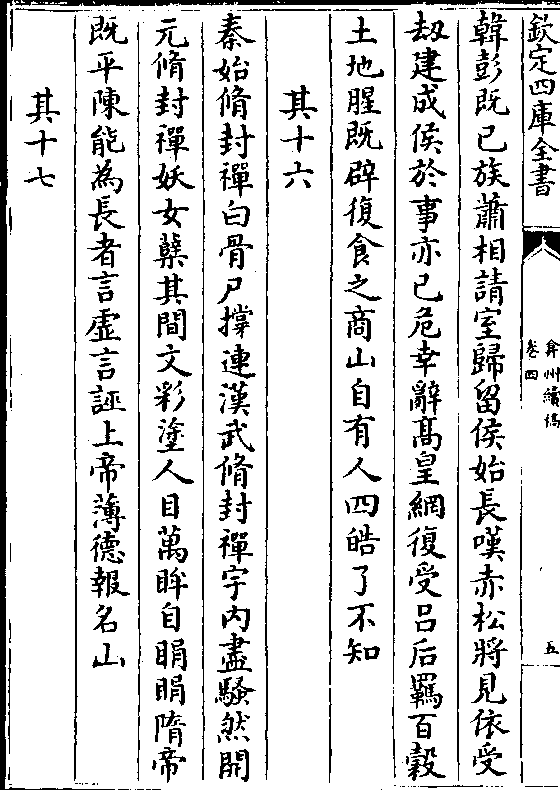 欽定四庫全書
弇州續稿
卷四
五
韓彭既已族蕭相請室歸留侯始長嘆赤松將見依受
刼建成侯於事亦已危幸辭髙皇網復受吕后羈百穀
土地腥既辟復食之商山自有人四皓了不知
其十六
秦始脩封禪白骨尸撐連漢武脩封禪宇内盡騷然開
元脩封禪妖女櫱其間文彩塗人目萬眸自睊睊隋帝
既平陳能為長者言虚言誣上帝薄德報名山
其十七